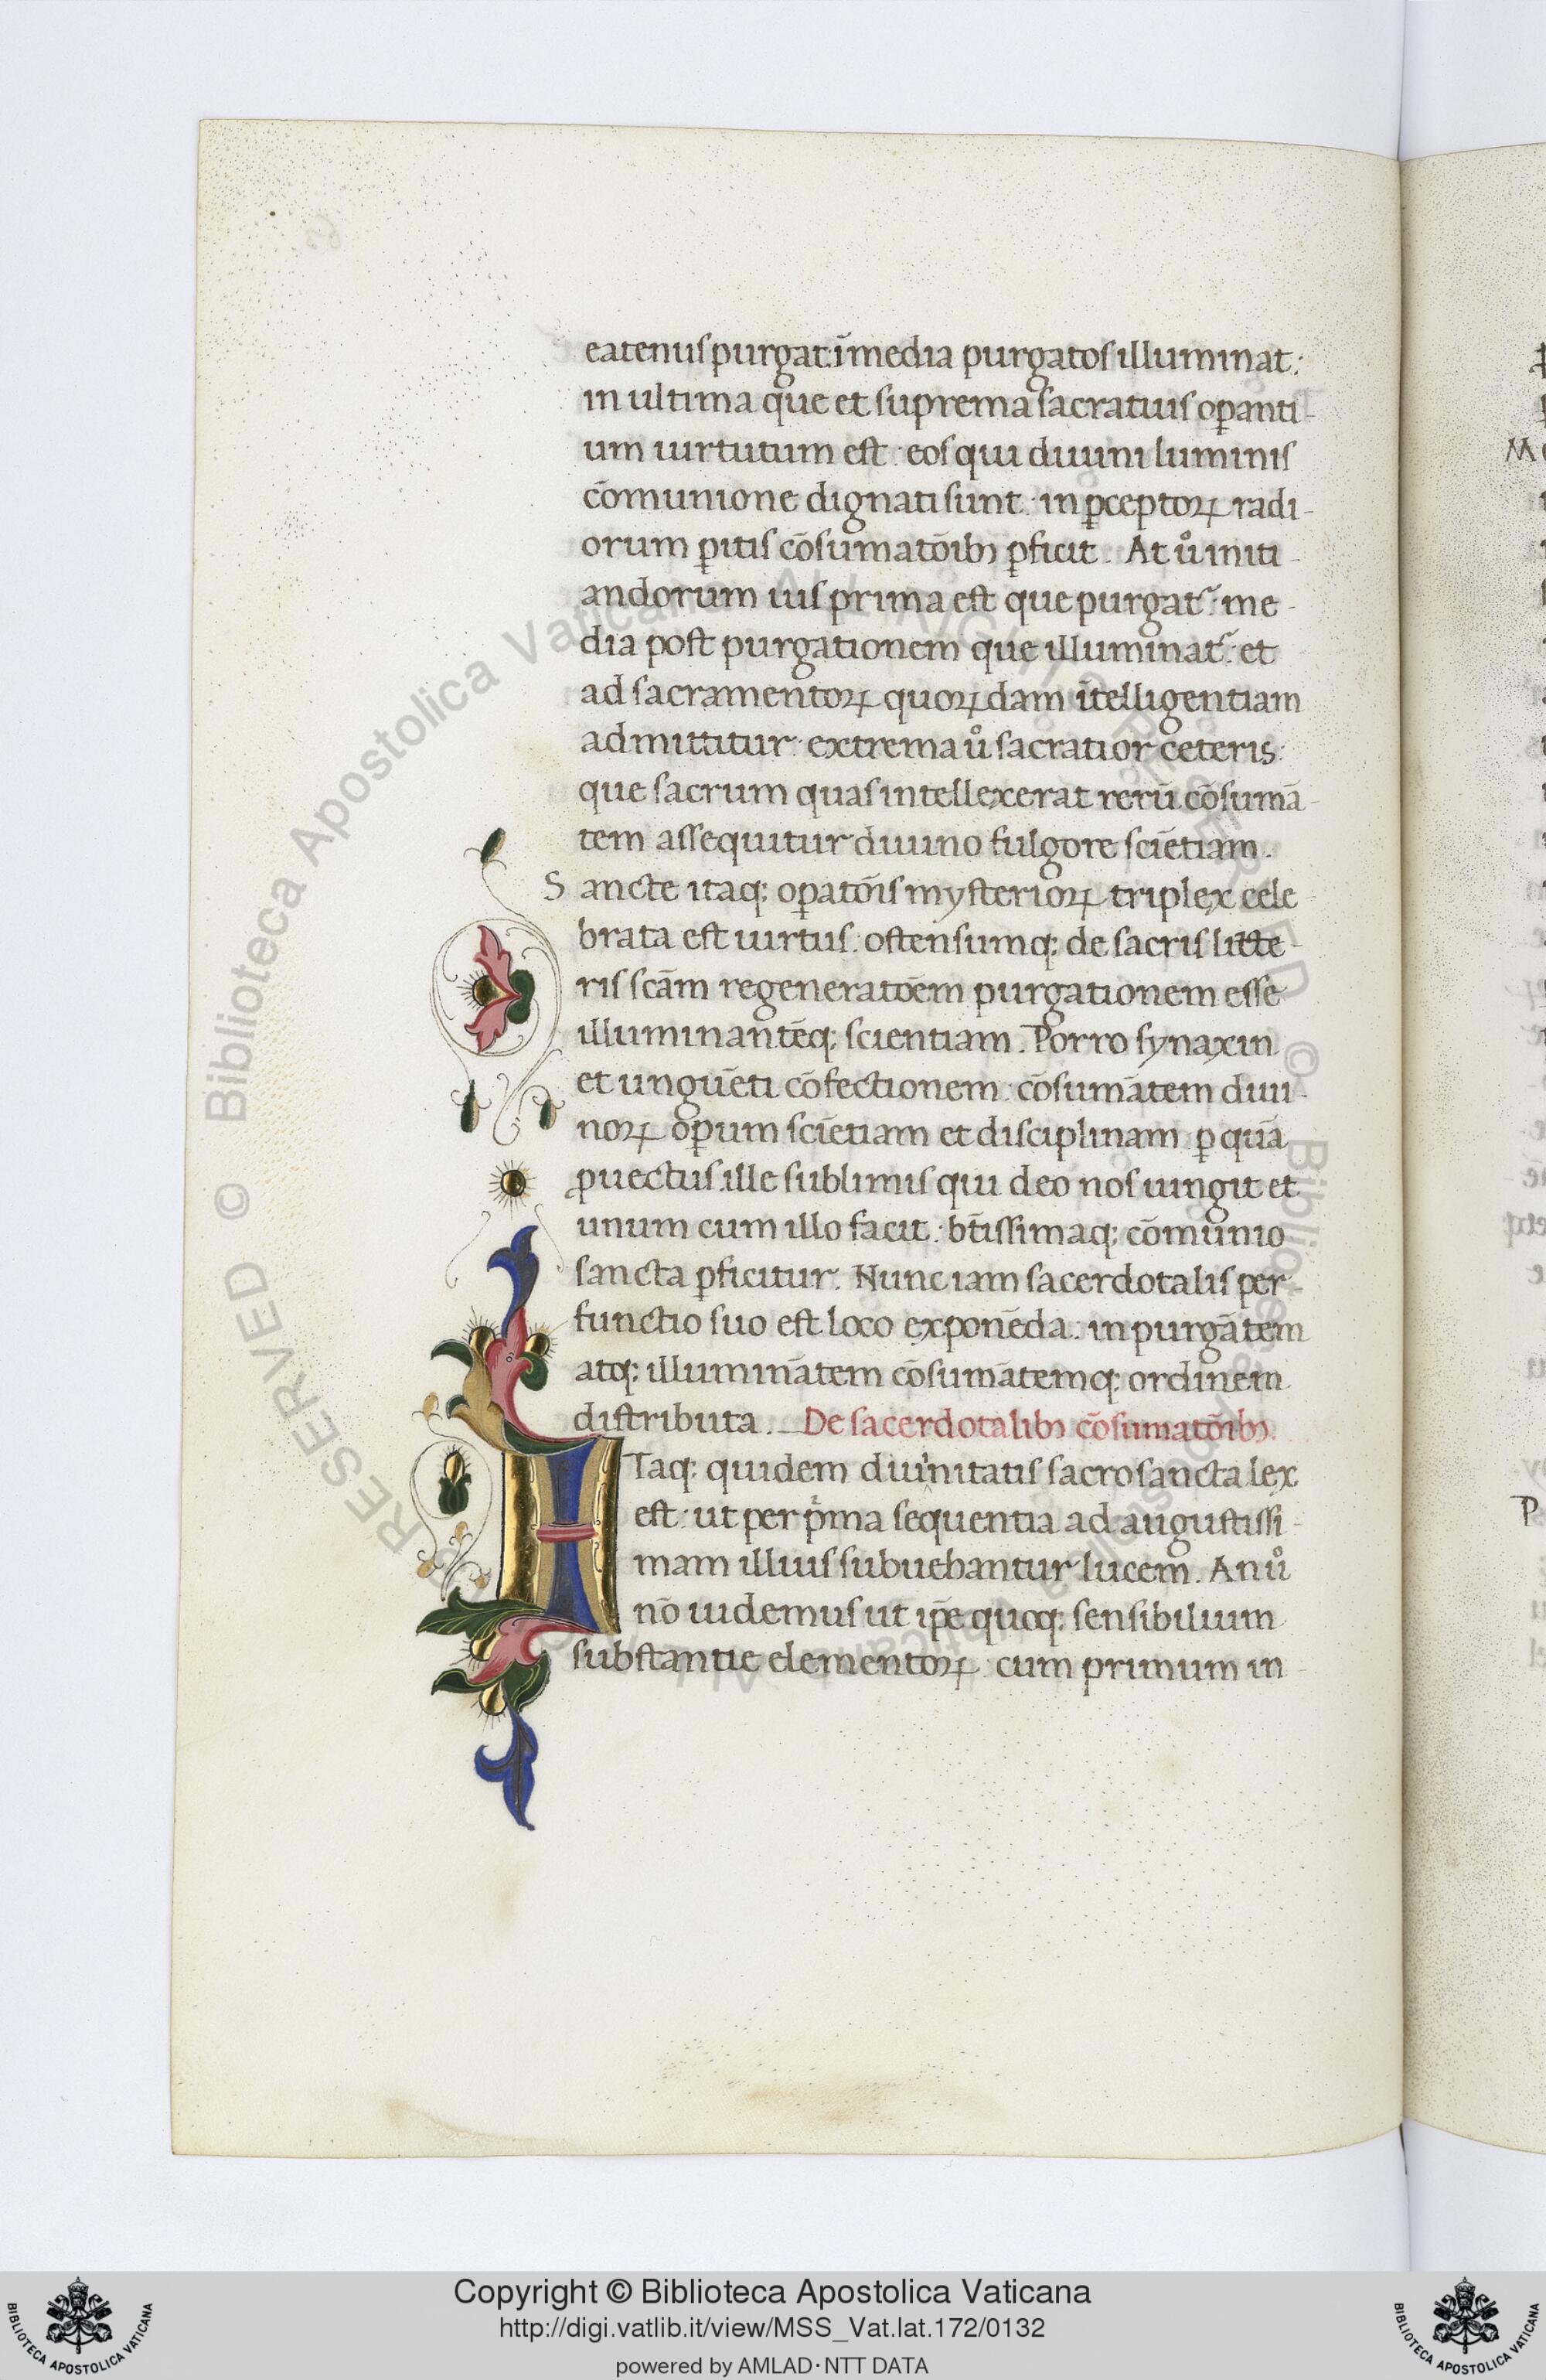 eatenus purgat: ī media purgatos illuminat:
in ultima que et suprema sacratiuis oꝑanti-
um uirtutum est: eos qui diuini luminis
cōmunione dignati sunt: in ꝑceptoꝝ radi-
orum ꝑitis cōsumatōibꝫ ꝑficit. At uͦ initi-
andorum uis prima est que purgat᷑: me-
dia post purgationem que illuminat᷑: et
ad sacramentoꝝ quoꝝdam ītelligentiam
admittitur: extrema uͦ sacratior ceteris:
que sacrum quas intellexerat rerū cōsumā-
tem assequitur diuino fulgore sciētiam.
Sancte itaqꝫ oꝑatōis mysterioꝝ triplex cele
brata est uirtus: ostensumqꝫ de sacris litte-
ris scām regeneratōem purgationem esse
illuminantēqꝫ scientiam. Porro synaxin
et unguēti cōfectionem: cōsumātem diui-
noꝝ oꝑum sciētiam et disciplinam ꝑ quā
ꝓuectus ille sublimis qui deo nos iungit et
unum cum illo facit: bt̄issimaqꝫ cōmunio
sancta ꝑficitur. Nunc iam sacerdotalis per-
functio suo est loco exponēda: in purgātem
atqꝫ illuminātem cōsumātemqꝫ ordinem
distributa. De sacerdotalibꝫ cōsumatōibꝫ.
ITaqꝫ quidem diuinitatis sacrosancta lex
est: ut per pͥma sequentia ad augustissi-
mam illius subuehantur lucem. An uͦ
nō uidemus ut ip̄e quoqꝫ sensibilium
substantie elementoꝝ: cum primum in
Copyright © Biblioteca Apostolica Vaticana
http://digi.vatlib.it/view/MSS_Vat.lat.172/0132
powered by AMLAD·NTT DATA
BIBLIOTECA APOSTOLICA VATICANA
BIBLIOTECA APOSTOLICA VATICANA